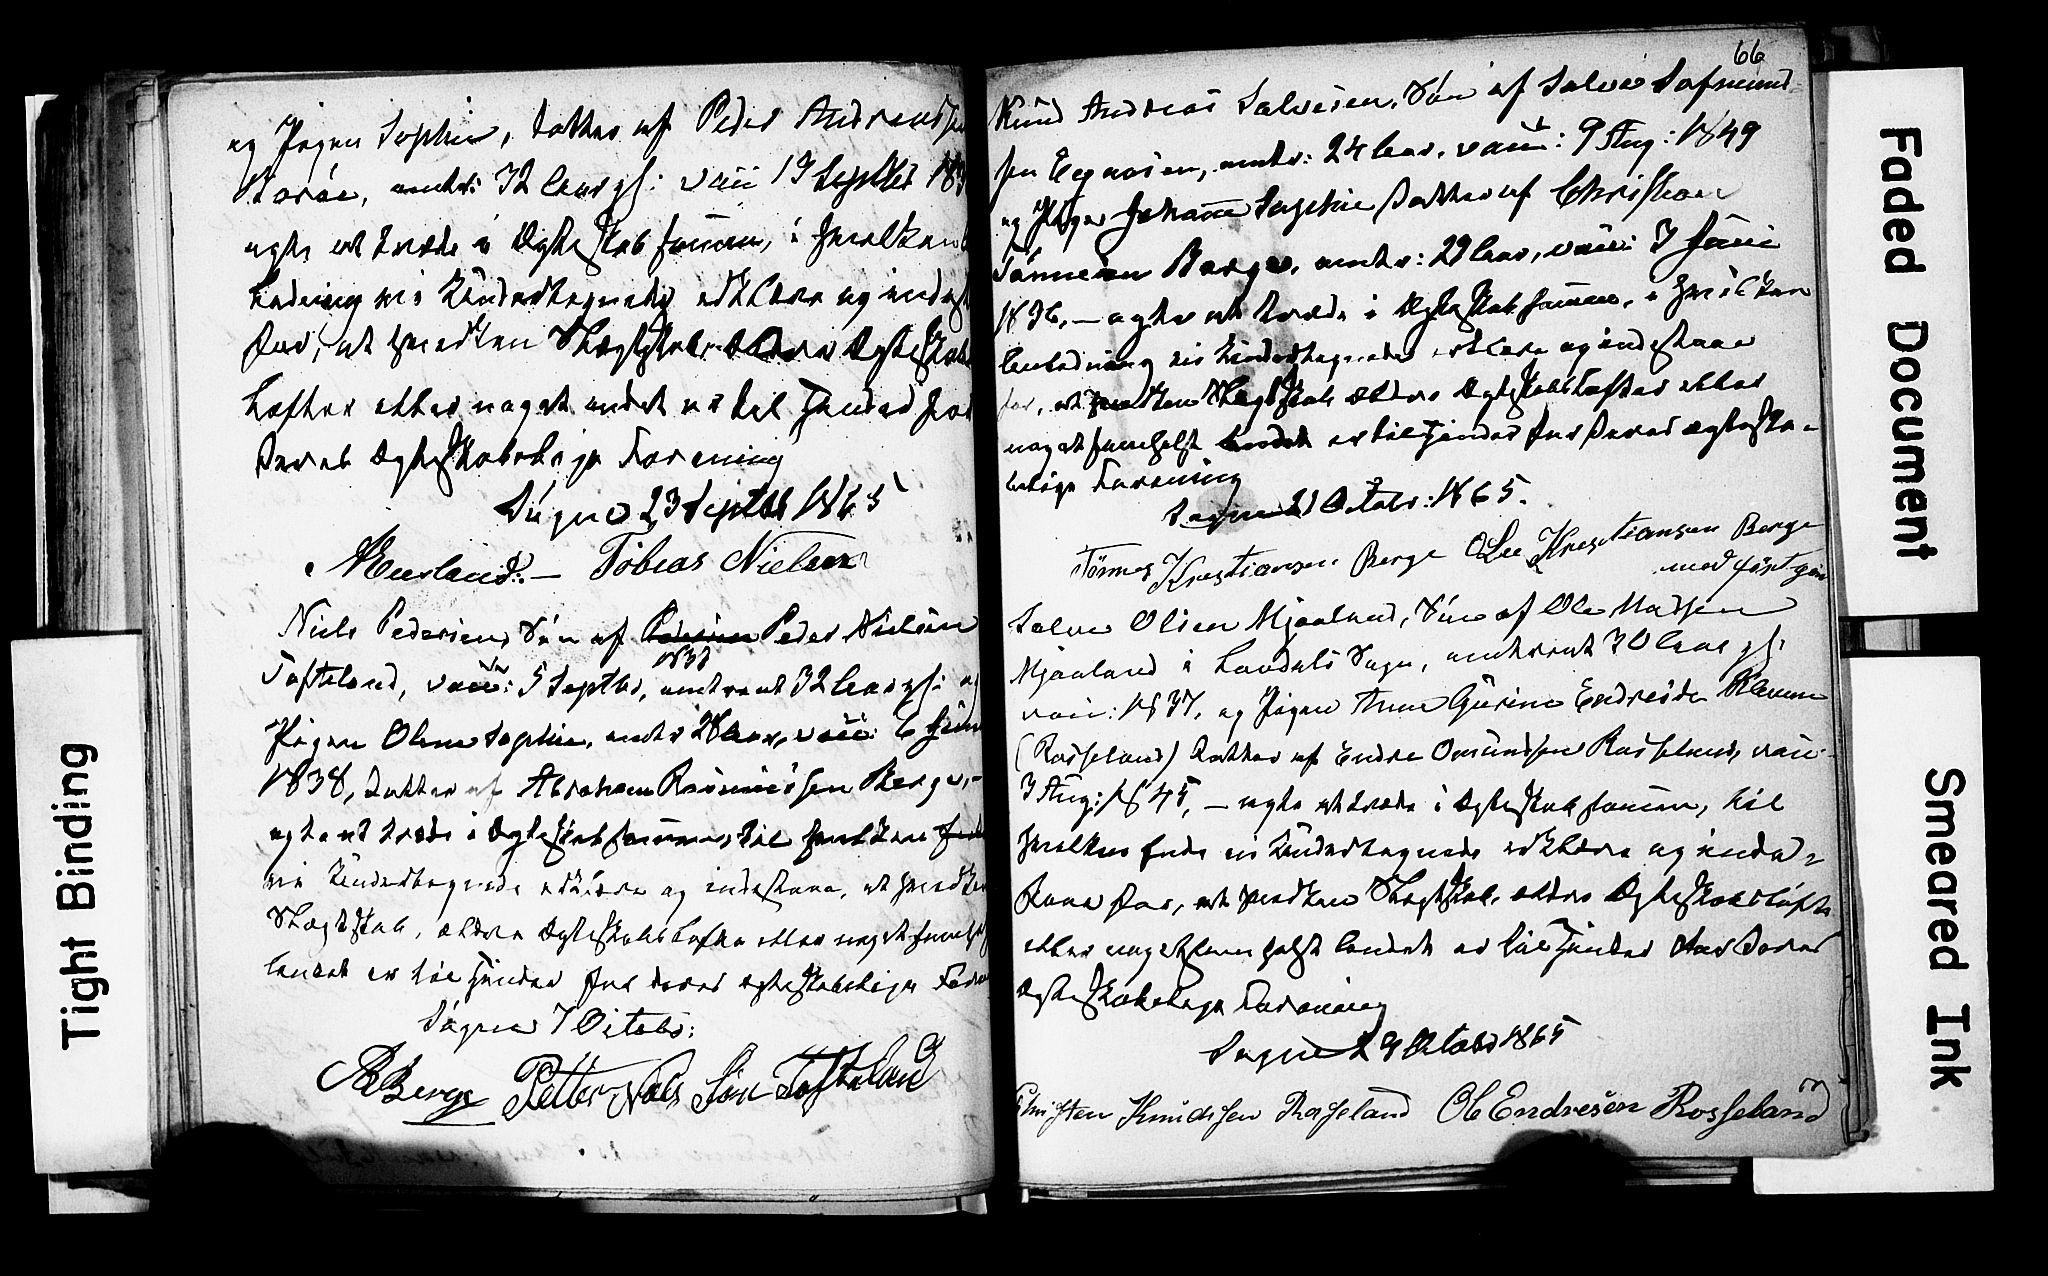 og Pigen Sophie, Datter af Peder Andreas
Borøe, omtr: 32 Aar gl: vacc 19 Septbr 18
agte at træde i Ægteskab sammen, i hvilken
ledning vi Undertegnede erklære og indest
for, at hverken Slægtskab ældre Ægteskabs
Løfter eller noget andet er til Hinder for
deres Ægteskabelige Forening
Søgne 23 Septbr 1865
Tobias Nielsen
Niels Pedersen, Søn af Peder Nielsen
1837
Tofteland, vacc: 5 Septbr, omtrent 32 Aar gl: og
Pigen Oline Sophie, omtr 28 Aar, vacc: 6 Juni
1838, Datter af Abraham Rasmussen Berge,-
agte at træde i Ægteskab sammen, til hvilken
vi Undertegnede erklære og indestaae, at hverken
Slægtskab, ældre Ægteskabs Løfte eller noget somhelst
andet er til Hinder for deres ægteskabelige Foren
Søgne 7 Octobr:
Berge Petter Niels Søn Tofteland
66
Knud Andreas Salvesen, Søn af Salve
sen Eegaasen, omtr: 24 Aar, vacc: 9 Aug: 1849
og Pigen Johanne Sophie Datter af Christian
Tønnesen Berge, omtr: 29 Aar, vacc: 3 Juni
1836, — agte at træde i Ægteskab sammen, i hvilken
Anledning vi Undertegnede erklære og indestaae
for, at hverken Slægtskab ældre Ægteskabsløfter eller
noget somhelst andet er til Hinder for deres ægteska-
belige Forening
Søgne 21 Octobr: 1865.
Tønnes Krestiansen Berge Ole Krestiansen Berge
med ført pen
Salve Olsen Mjaaland, Søn af Ole Madsen
Mjaaland i Laudals Sogn, omtrent 30 Aar gl:
vacc: 1837, og Pigen Anne Gurine Endresdr
(Rosseland) Datter af Endre Omundsen Rosseland, vacc:
3 Aug: 1845, — agte at træde i Ægteskab sammen, til
hvilken Ende vi Undertegnede erklære og inde-
staae for, at hverken Slægtskab, ældre Ægteskabsløfte
eller noget som helst andet er til Hinder for deres
Ægteskabelige Forening
Søgne 29 Octobr 1865
Christen Knudssen Rosseland Ole Endresen Rosseland
Tight Binding
Faded Document
Smeared Ink